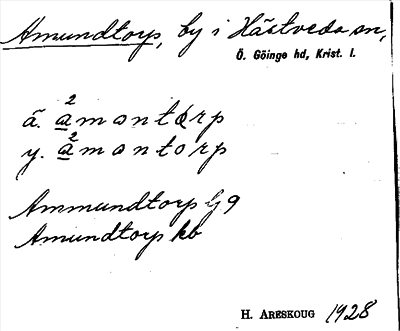 Amundtorp, by i Hästveda sn,
Ö. Göinge hd, Krist. l.
ä. a²mantorp
y. a²mantorp
Ammundtorp G 9
Amundtorp kb
H. ARESKOUG 1928